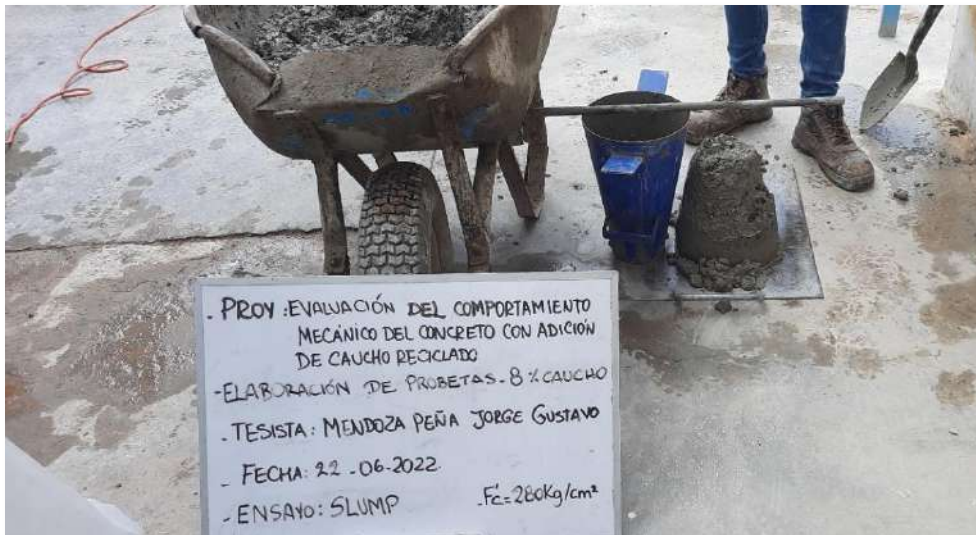 . PROY : EVALUACIÓN DEL COMPORTAMIENTO
MECÁNICO DEL CONCRETO CON ADICIÓN
DE CAUCHO RECICLADO
-ELABORACIÓN DE PROBETAS - 8 % CAUCHO
. TESISTA: MENDOZA PEÑA JORGE GUSTAVO
- FECHA: 22 -06-2022.
- ENSAYO: SLUMP -F'c=280Kg/cm²